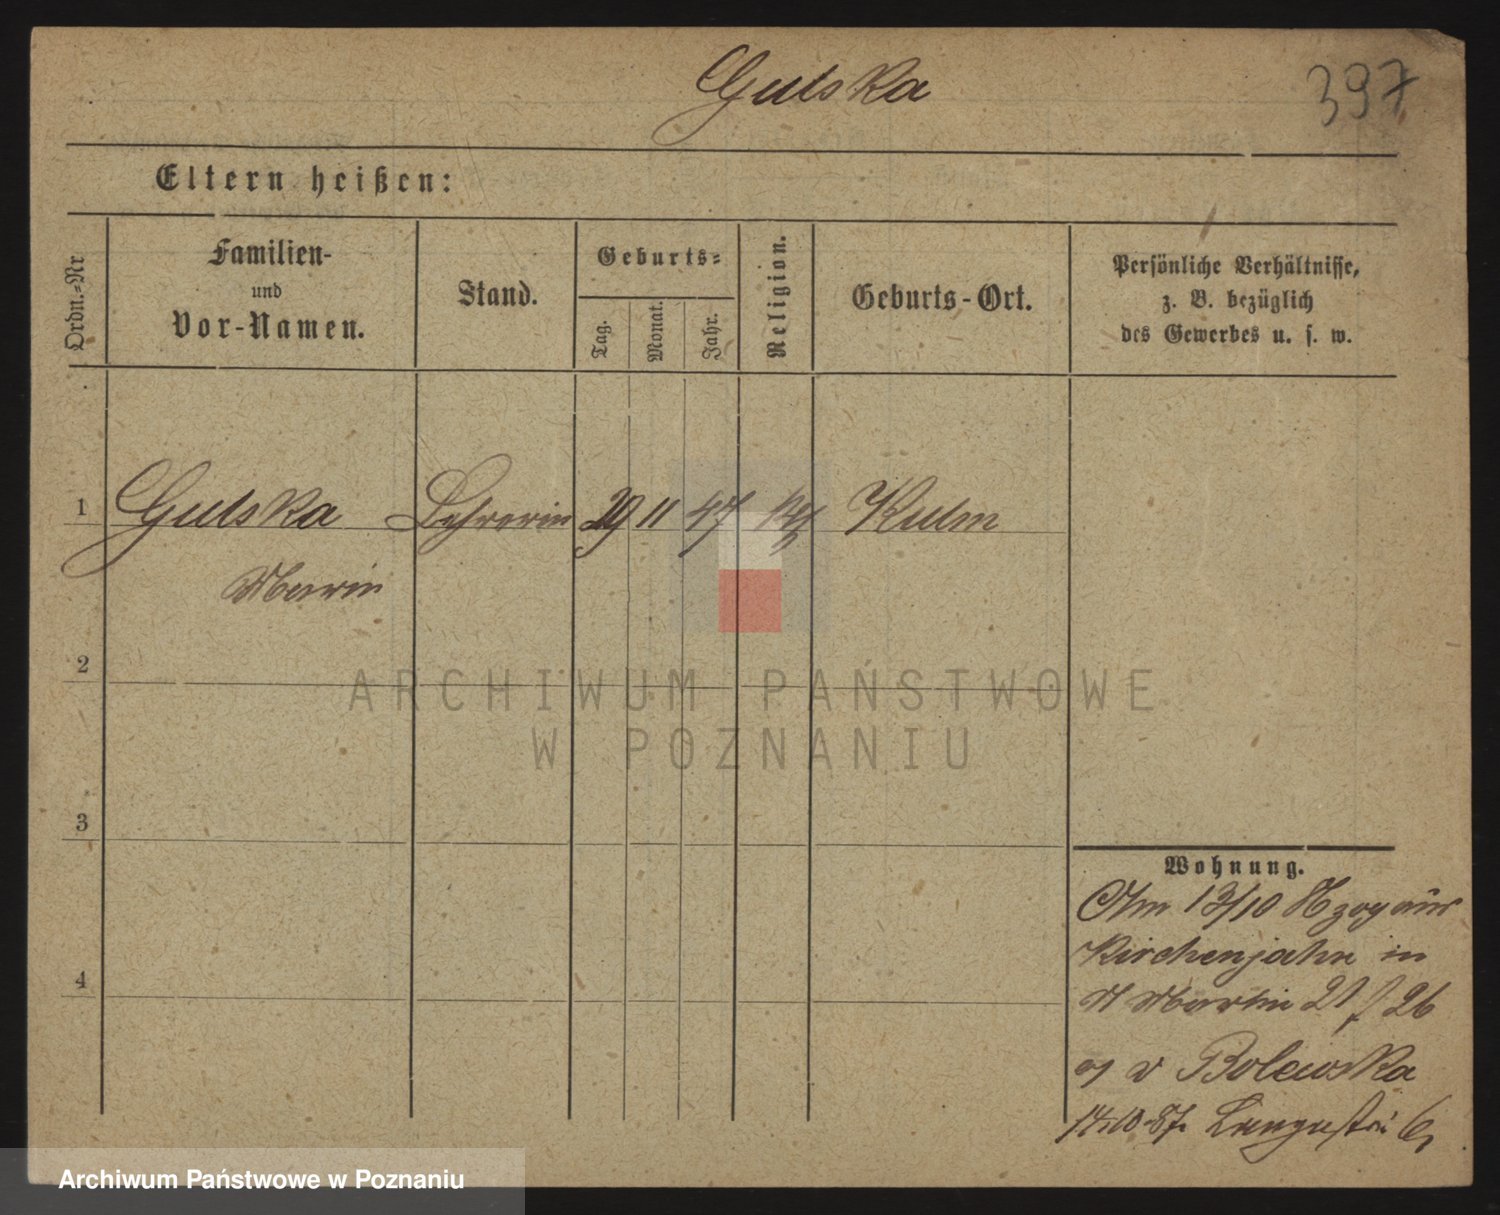 Gulska
397
Eltern heißen:
Ordn.-Nr
Familien-
und
Vor-Namen.
Stand.
Geburts-
Tag.
Monat.
Jahr.
Religion.
Geburts-Ort.
Persönliche Verhältnisse,
z. B. bezüglich
des Gewerbes u. s. w.
1
Gulska Lehrerin 29 11 47 Kulm
Marie
2
ARCHIWUM PAŃSTWOWE
W POZNANIU
3
Wohnung.
Am 13/10 zog aus
in
St Martin 21 f 26
v Bolewska
14.10.87. Langestr 6
4
Archiwum Państwowe w Poznaniu